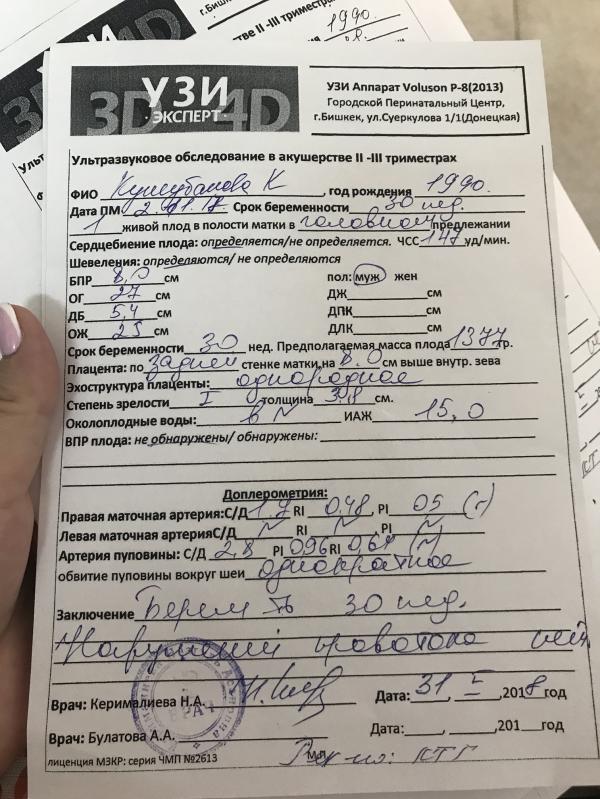 г.Бишкек
1990.
ТВЕ II -III триместрах
УЗИ
3D 4D
·ЭКСПЕРТ·
УЗИ Аппарат Voluson P-8(2013)
Городской Перинатальный Центр,
г.Бишкек, ул.Суеркулова 1/1(Донецкая)
Ультразвуковое обследование в акушерстве II -III триместрах
ФИО К, год рождения 1990.
Дата ПМ Срок беременности 30 нед.
1 живой плод в полости матки в головном предлежании
Сердцебиение плода: определяется/не определяется. ЧСС 147 уд/мин.
Шевеления: определяются/ не определяются
БПР 8,0 см пол: муж жен
ОГ 27 см ДЖ см
ДБ 5,4 см ДПК см
ОЖ 25 см ДЛК см
Срок беременности 30 нед. Предполагаемая масса плода 1377 гр.
Плацента: по задней стенке матки на 8.0 см выше внутр. зева
Эхоструктура плаценты: однородное
Степень зрелости I толщина 3,8 см.
Околоплодные воды: в N ИАЖ 15,0
ВПР плода: не обнаружены/ обнаружены:
Доплерометрия:
Правая маточная артерия: С/Д RI 0,48, PI 05 (N)
Левая маточная артерия С/Д N RI N, PI N
Артерия пуповины: С/Д 2,8 PI 096 RI 0,64 (N)
обвитие пуповины вокруг шеи однократное
Заключение Берем ть 30 нед.
Нарушений кровотока нет
ВРАЧ
Врач: Керималиева Н.А. Дата: 31 I 2018 год
Врач: Булатова А.А. Дата: 201 год
лицензия МЗКР: серия ЧМП №2613 КТГ